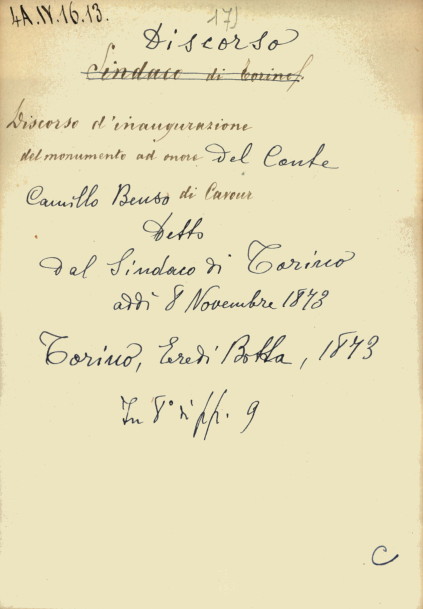 4A.IV.16.13.
17)
Discorso
Sindaco di Torino
Discorso d'inaugurazione
del monumento ad onore del Conte
Camillo Benso di Cavour
Detto
dal Sindaco di Torino
addì 8 Novembre 1873
Torino, Eredi Botta, 1873
In 8° di pp. 9
C